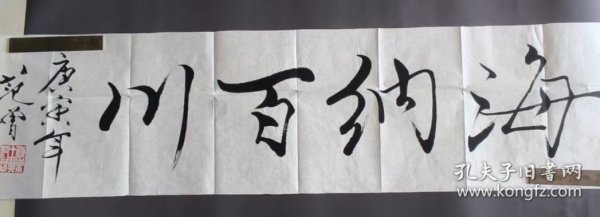 海纳百川
庚寅年
范曾
孔夫子旧书网
www.kongfz.com